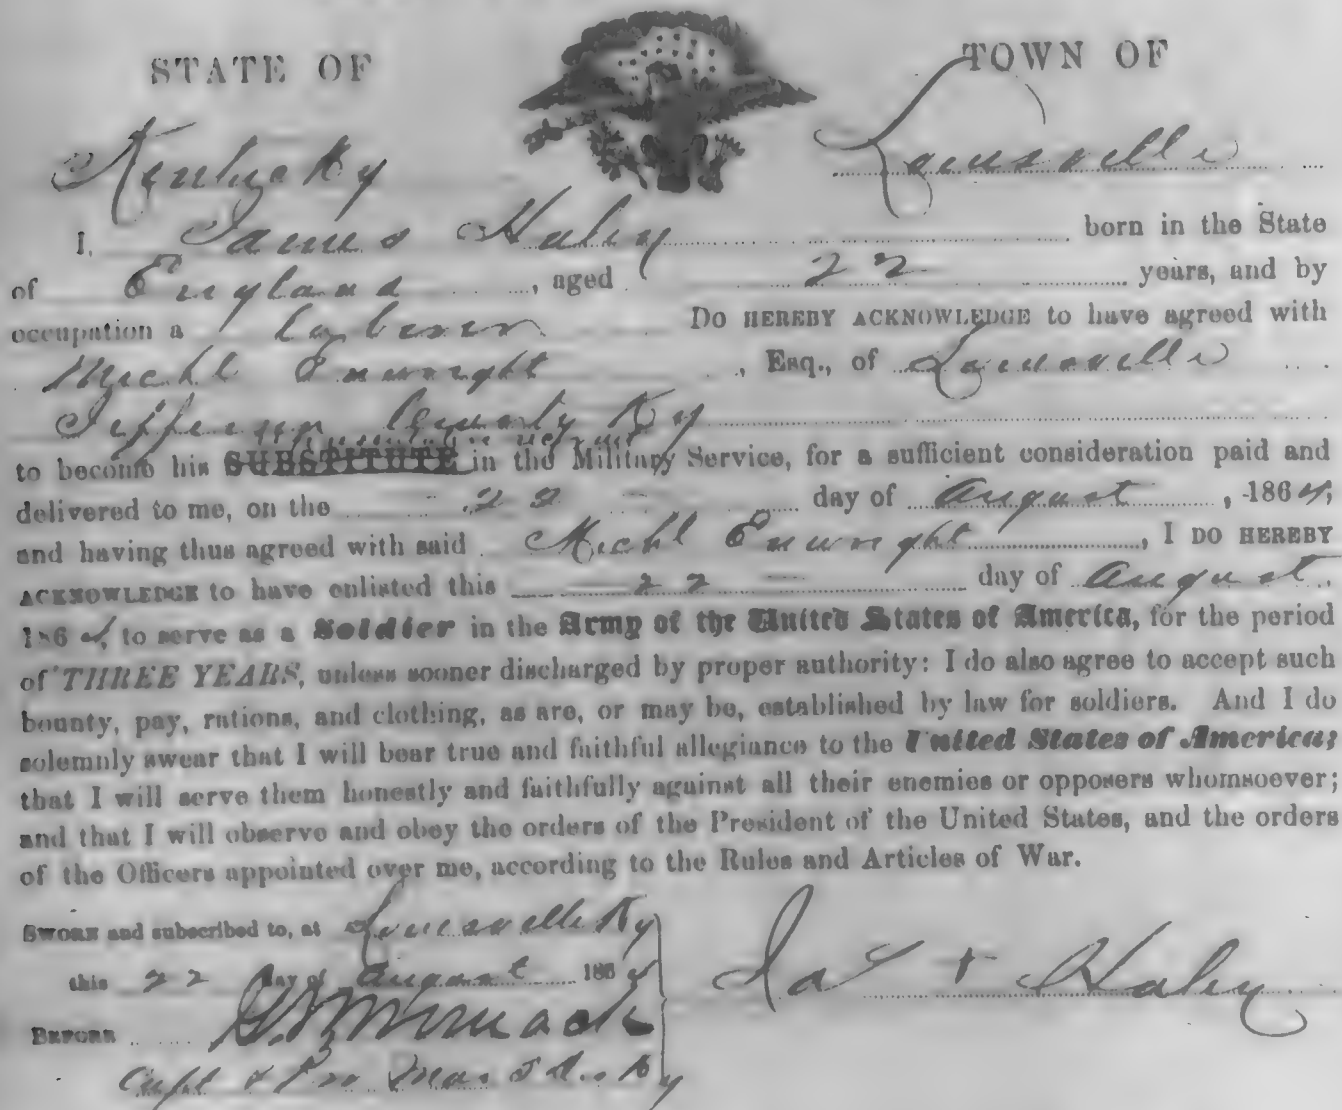 STATE OF
TOWN OF
Kentucky
Louisville
I, James Haley born in the State
of England, aged 22 years, and by
occupation a Laborer DO HEREBY ACKNOWLEDGE to have agreed with
Michl Enwright, Esq., of Louisville
Jefferson County Ky
to become his SUBSTITUTE in the Military Service, for a sufficient consideration paid and
delivered to me, on the 22 day of August, 1864,
and having thus agreed with said Michl Enwright, I DO HEREBY
ACKNOWLEDGE to have enlisted this 22 day of August
1864, to serve as a Soldier in the Army of the United States of America, for the period
of THREE YEARS, unless sooner discharged by proper authority: I do also agree to accept such
bounty, pay, rations, and clothing, as are, or may be, established by law for soldiers. And I do
solemnly swear that I will bear true and faithful allegiance to the United States of America;
that I will serve them honestly and faithfully against all their enemies or opposers whomsoever;
and that I will observe and obey the orders of the President of the United States, and the orders
of the Officers appointed over me, according to the Rules and Articles of War.
SWORN and subscribed to, at Louisville Ky
this 22 day of August 1864
Jas + Haley
BEFORE
Capt & Pro Mar 5 Ky